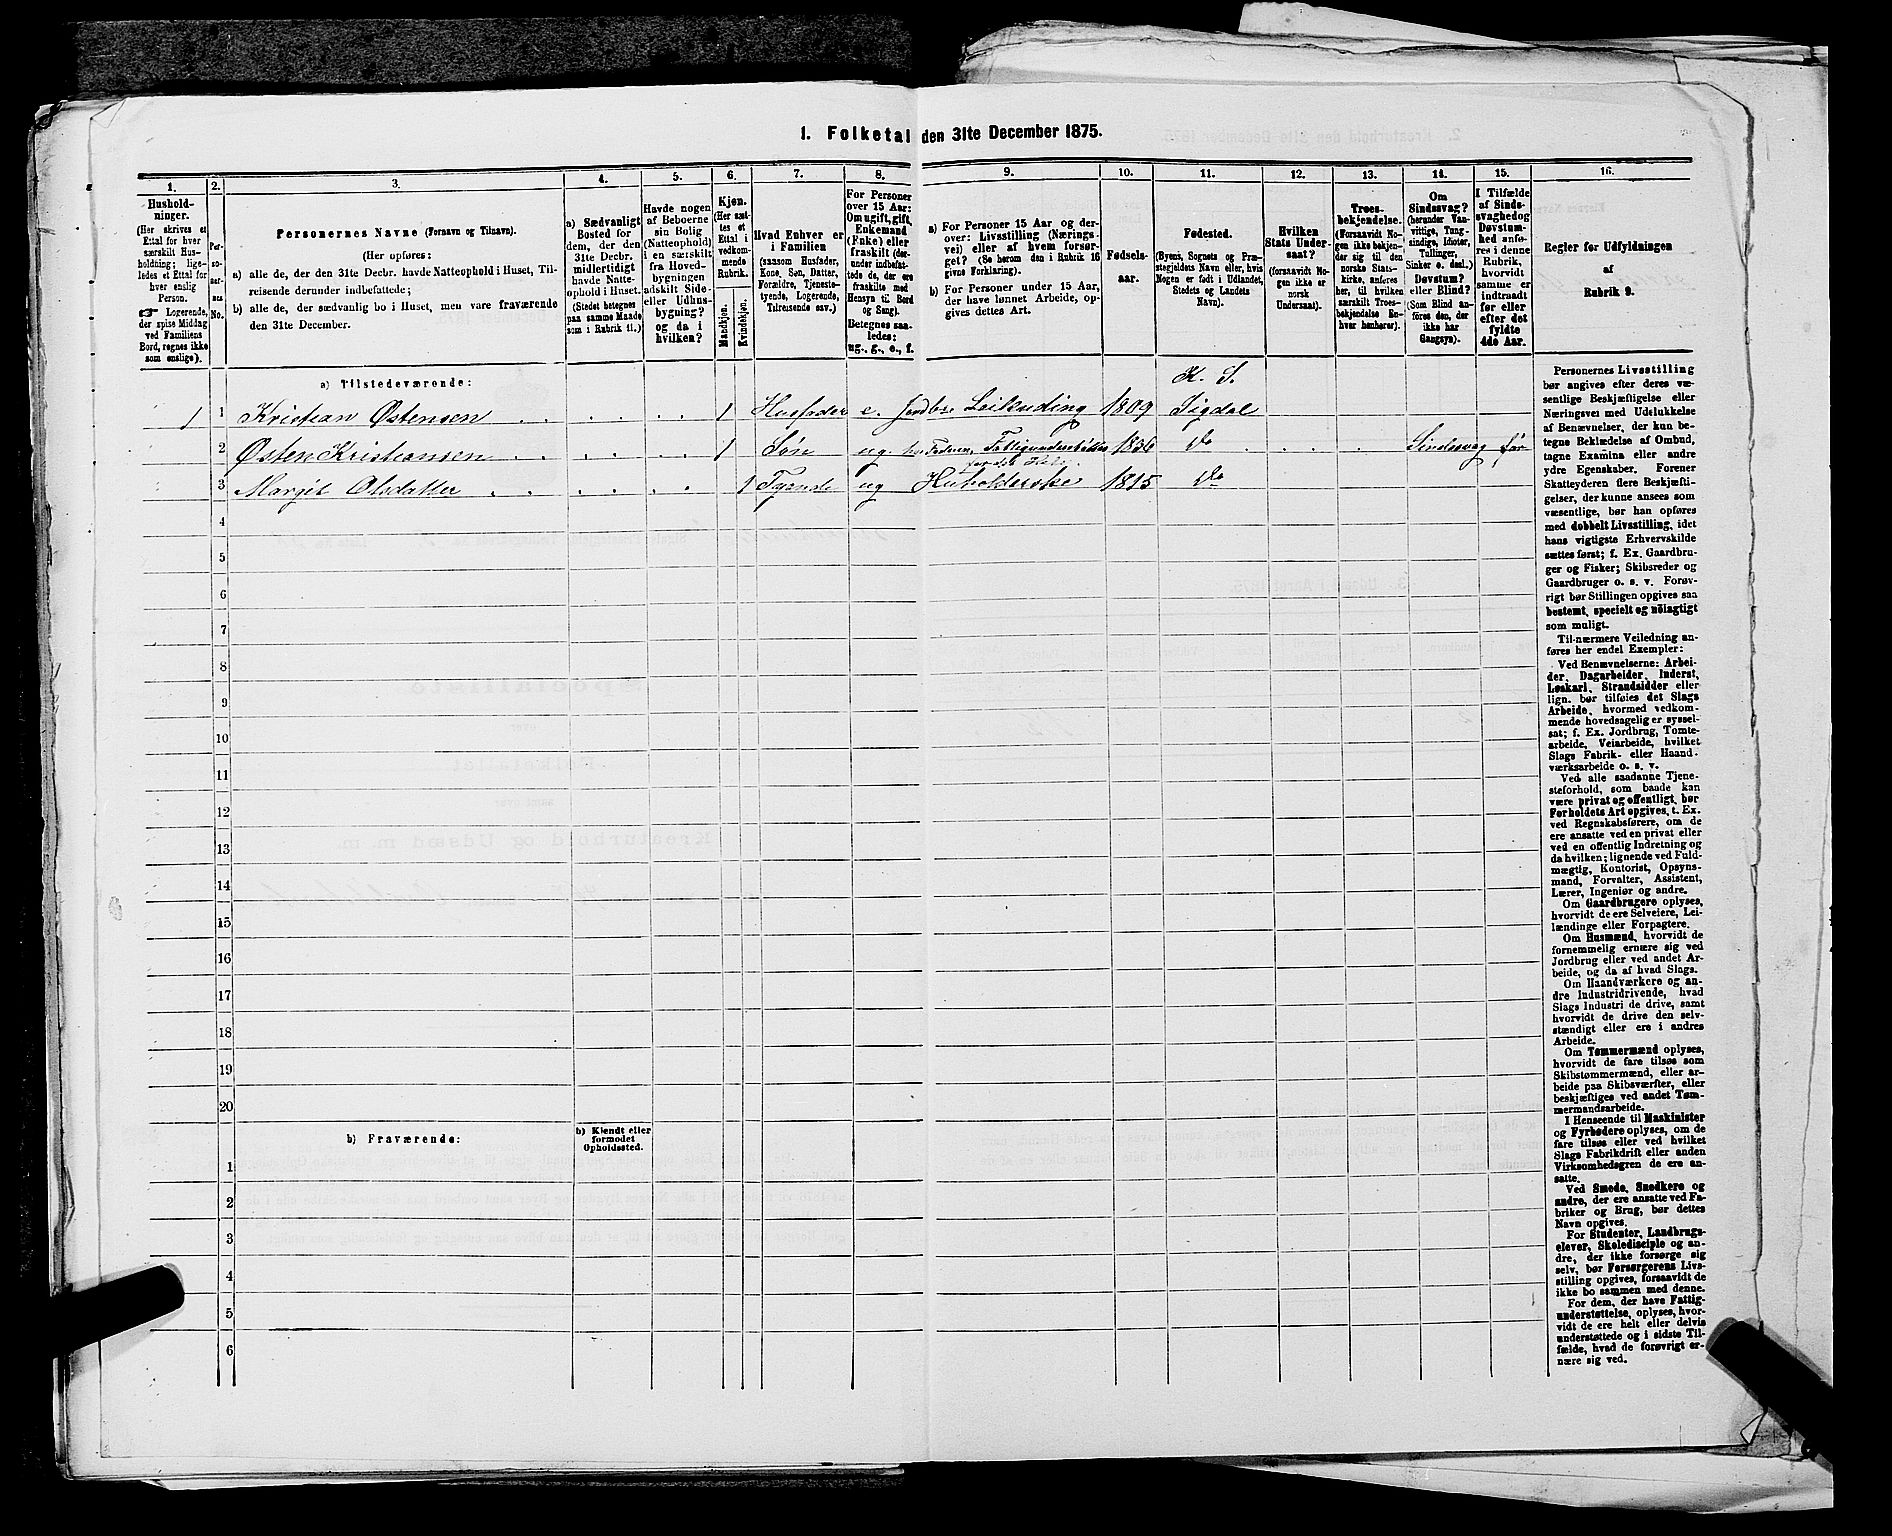 1. Folketal den 31te December 1875.
1. 2. 3. 4. 5. 6. 7. 8. 9. 10. 11. 12. 13. 14. 15. 16.
Hushold-
ninger.
(Her skrives et
Ettal for hver
særskilt Hus-
holdning; lige-
ledes et Ettal for
hver enslig
Person.
☛ Logerende,
der spise Middag
ved Familiens
Bord, regnes ikke
som enslige).
Per-
so-
ner-
nes
No.
Personernes Navne (Fornavn og Tilnavn).
(Her opføres:
a) alle de, der den 31te Decbr. havde Natteophold i Huset, Til-
reisende derunder indbefattede;
b) alle de, der sædvanlig bo i Huset, men vare fraværende
den 31te December.
a) Sædvanligt
Bosted for
dem, der den
31te Decbr.
midlertidigt
havde Natte-
ophold i Huset.
(Stedet betegnes
paa samme Maade
som i Rubrik 11.)
Havde nogen
af Beboerne
sin Bolig
(Natteophold)
i en særskilt
fra Hoved-
bygningen
adskilt Side-
eller Udhus-
bygning?
og da i
hvilken?
Kjøn.
(Her sæt-
tes et
Ettal i
vedkom-
mende
Rubrik.
Mandkjøn.
Kvindekjøn.
Hvad Enhver er
i Familien
(saasom Husfader,
Kone, Søn, Datter,
Forældre, Tjeneste-
tyende, Logerende,
Tilreisende osv.)
For Personer
over 15 Aar:
Om ugift, gift,
Enkemand
(Enke) eller
fraskilt (der-
under indbefat-
tede de, der ere
fraskilte med
Hensyn til Bord
og Seng).
Betegnes saa-
ledes:
ug., g., e., f.
a) For Personer 15 Aar og der-
over: Livsstilling (Nærings-
vei) eller af hvem forsør-
get? (Se herom den i Rubrik 16
givne Forklaring).
b) For Personer under 15 Aar,
der have lønnet Arbeide, op-
gives dettes Art.
Fødsels-
aar.
Fødested.
(Byens, Sognets og Præ-
stegjeldets Navn eller, hvis
Nogen er født i Udlandet,
Stedets og Landets
Navn).
Hvilken
Stats Under-
saat?
(forsaavidt No-
gen ikke er
norsk
Undersaat).
Troes-
bekjendelse.
(Forsaavidt No-
gen ikke bekjen-
der sig til den
norske Stats-
kirke, anføres
her, til hvilken
særskilt Troes-
bekjendelse En-
hver henhører).
Om
Sindssvag?
(herunder Van-
vittige, Tung-
sindige, Idioter,
Tullinger,
Sinker o. desl.)
Døvstum?
eller Blind?
(Som Blind an-
føres den, der
ikke har
Gangsyn).
I Tilfælde
af Sinds-
svaghed og
Døvstum-
hed anfø-
res i denne
Rubrik,
hvorvidt
samme er
indtraadt
før eller
efter det
fyldte
4de Aar.
Regler for Udfyldningen
af
Rubrik 9.
a) Tilstedeværende: K. S.
1 1 Kristian Østensen 1 Husfader e. Jordbr. 1809 Sigdal
2 Østen Kristiansen 1 Søn ug. Fattigunderstøttes 1836 do Sindssvag før
3 Margit Olsdatter 1 Tyende ug Husholderske 1815 do
4
5
6
7
8
9
10
11
12
13
14
15
16
17
18
19
20
b) Fraværende:
b) Kjendt eller
formodet
Opholdssted.
1
2
3
4
5
6
Personernes Livsstilling
bør angives efter deres væ-
sentlige Beskjæftigelse eller
Næringsvei med Udelukkelse
af Benævnelser, der kun be-
tegne Beklædelse af Ombud,
tagne Examina eller andre
ydre Egenskaber. Forener
Skatteyderen flere Beskjæfti-
gelser, der kunne ansees som
væsentlige, bør han opføres
med dobbelt Livsstilling, idet
hans vigtigste Erhvervskilde
sættes først; f. Ex. Gaardbru-
ger og Fisker; Skibsreder og
Gaardbruger o. s. v. Forøv-
rigt bør Stillingen opgives saa
bestemt, specielt og nöiagtigt
som muligt.
Til nærmere Veiledning an-
føres her endel Exempler:
Ved Benævnelserne: Arbei-
der, Dagarbeider, Inderst,
Løskarl, Strandsidder eller
lign. bør tilføies det Slags
Arbeide, hvormed vedkom-
mende hovedsagelig er syssel-
sat; f. Ex. Jordbrug, Tomte-
arbeide, Veiarbeide, hvilket
Slags Fabrik- eller Haand-
værksarbeide o. s. v.
Ved alle saadanne Tjene-
steforhold, som baade kan
være privat og offentligt, bør
Forholdets Art opgives, t. Ex.
ved Regnskabsførere, om de
ere ansatte ved en privat eller
ved en offentlig Indretning og
da hvilken; lignende ved Fuld-
mægtig, Kontorist, Opsyns-
mand, Forvalter, Assistent,
Lærer, Ingeniør og andre.
Om Gaardbrugere oplyses,
hvorvidt de ere Selveiere, Lei-
lændinge eller Forpagtere.
Om Husmænd, hvorvidt de
fornemmelig ernære sig ved
Jordbrug eller ved andet Ar-
beide, og da af hvad Slags.
Om Haandværkere og an-
dre Industridrivende, hvad
Slags Industri de drive, samt
hvorvidt de drive den selv-
stændigt eller ere i andres
Arbeide.
Om Tømmermænd oplyses,
hvorvidt de fare tilsøs som
Skibstømmermænd, eller ar-
beide paa Skibsværfter, eller
beskjæftiges ved andet Tøm-
mermandsarbeide.
I Henseende til Maskinister
og Fyrbødere oplyses, om de
fare tilsøs eller ved hvilket
Slags Fabrikdrift eller anden
Virksomhedsgren de ere an-
satte.
Ved Smede, Snedkere og
andre, der ere ansatte ved Fa-
briker og Brug, bør dettes
Navn opgives.
For Studenter, Landbrugs-
elever, Skoledisciple og an-
dre, der ikke forsørge sig
selv, bør Forsørgerens Livs-
stilling opgives, forsaavidt de
ikke bo sammen med denne.
For dem, der have Fattig-
understøttelse, oplyses, hvor-
vidt de ere helt eller delvis
understøttede og i sidste Til-
fælde, hvad de forøvrigt er-
nære sig ved.